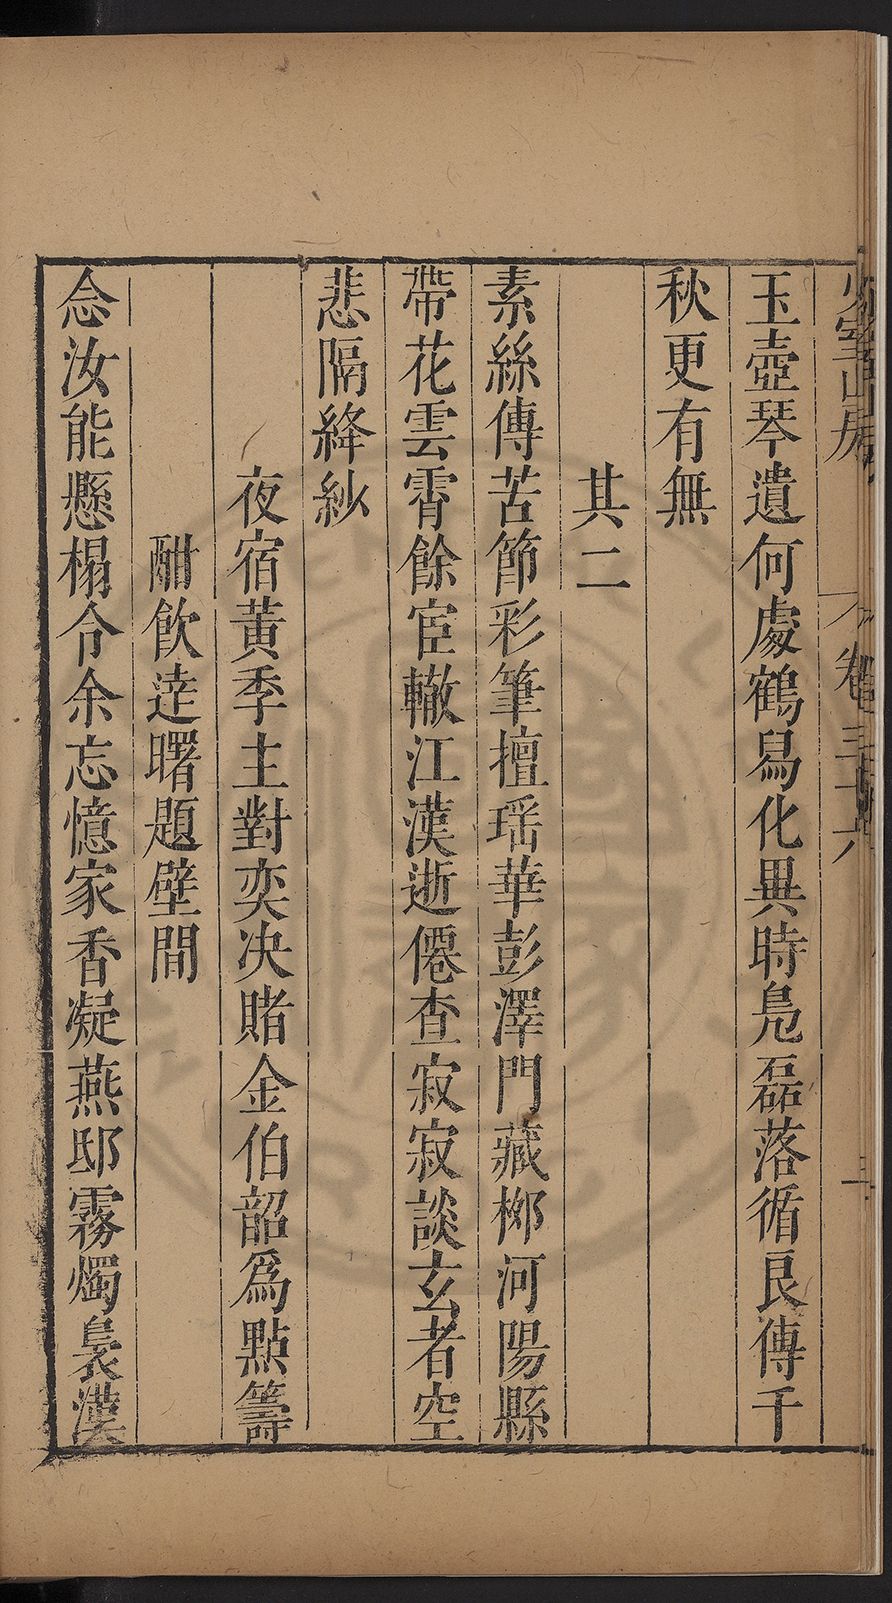 少室山房 卷三十六 三
玉壺琴遺何處鶴舄化異時鳧磊落循良傳千
秋更有無
其二
素絲傳苦節彩筆擅瑶華彭澤門藏栁河陽縣
帶花雲霄餘宦轍江漢逝僊查寂寂談玄者空
悲隔絳紗
夜宿黄季主對奕决賭金伯韶爲點籌
酣飲達曙題壁間
念汝能懸榻令余忘憶家香凝燕邸霧燭裊漢